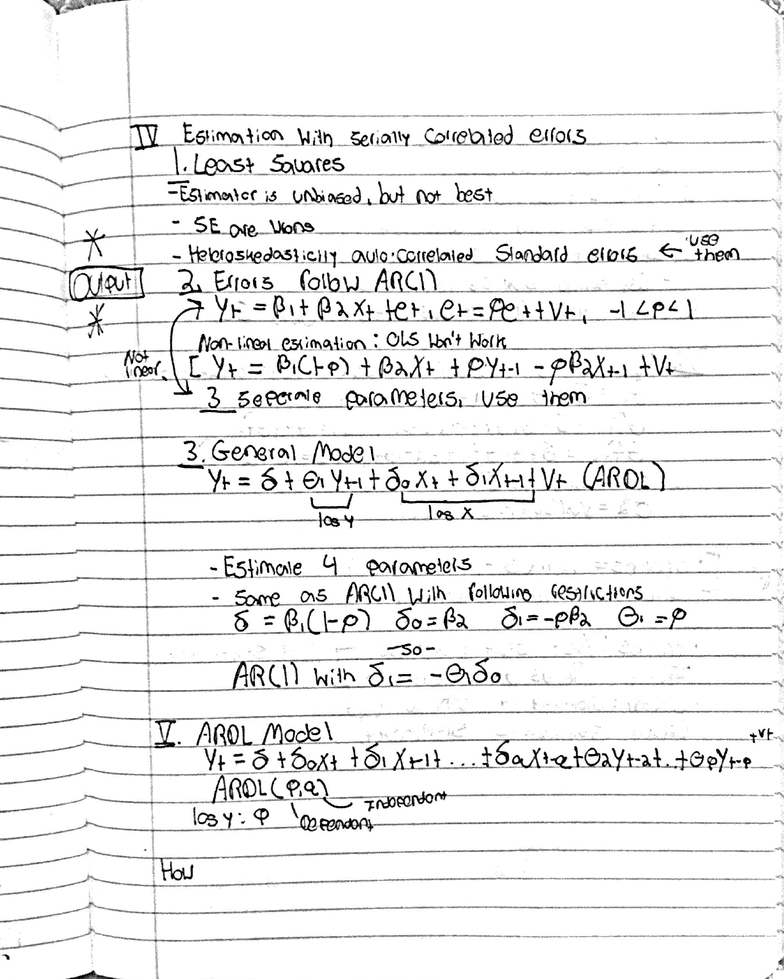 IV Estimation with serially correlated errors
1. Least Squares
- Estimator is unbiased, but not best
- SE are wrong
* - Heteroskedasticity auto-correlated Standard errors ← use them
Output 2. Errors follow AR(1)
* Yt = β1 + β2Xt + et, et = ρet + Vt, -1 < ρ < 1
Non-linear estimation: OLS Won't Work
Not linear. [ Yt = β1(1-ρ) + β2Xt + ρYt-1 - ρβ2Xt-1 + Vt
3 seperate parameters, use them
3. General Model
Yt = δ + θ1Yt-1 + δ0Xt + δ1Xt-1 + Vt (ARDL)
lag Y lag X
- Estimate 4 parameters
- Same as AR(1) with following restrictions
δ = β1(1-ρ) δ0 = β2 δ1 = -ρβ2 θ1 = ρ
- so -
AR(1) with δ1 = -θ1δ0
V. ARDL Model
Yt = δ + δ0Xt + δ1Xt-1 + ... + δqXt-q + θ2Yt-2 + .. + θpYt-p + Vt
ARDL(P,q)
Independent
lag y: P Dependent
How